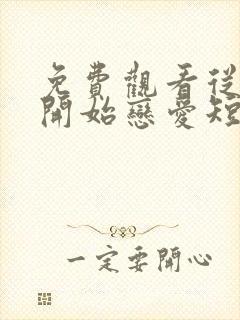 免費觀看從
開始戀愛短
一定要開心